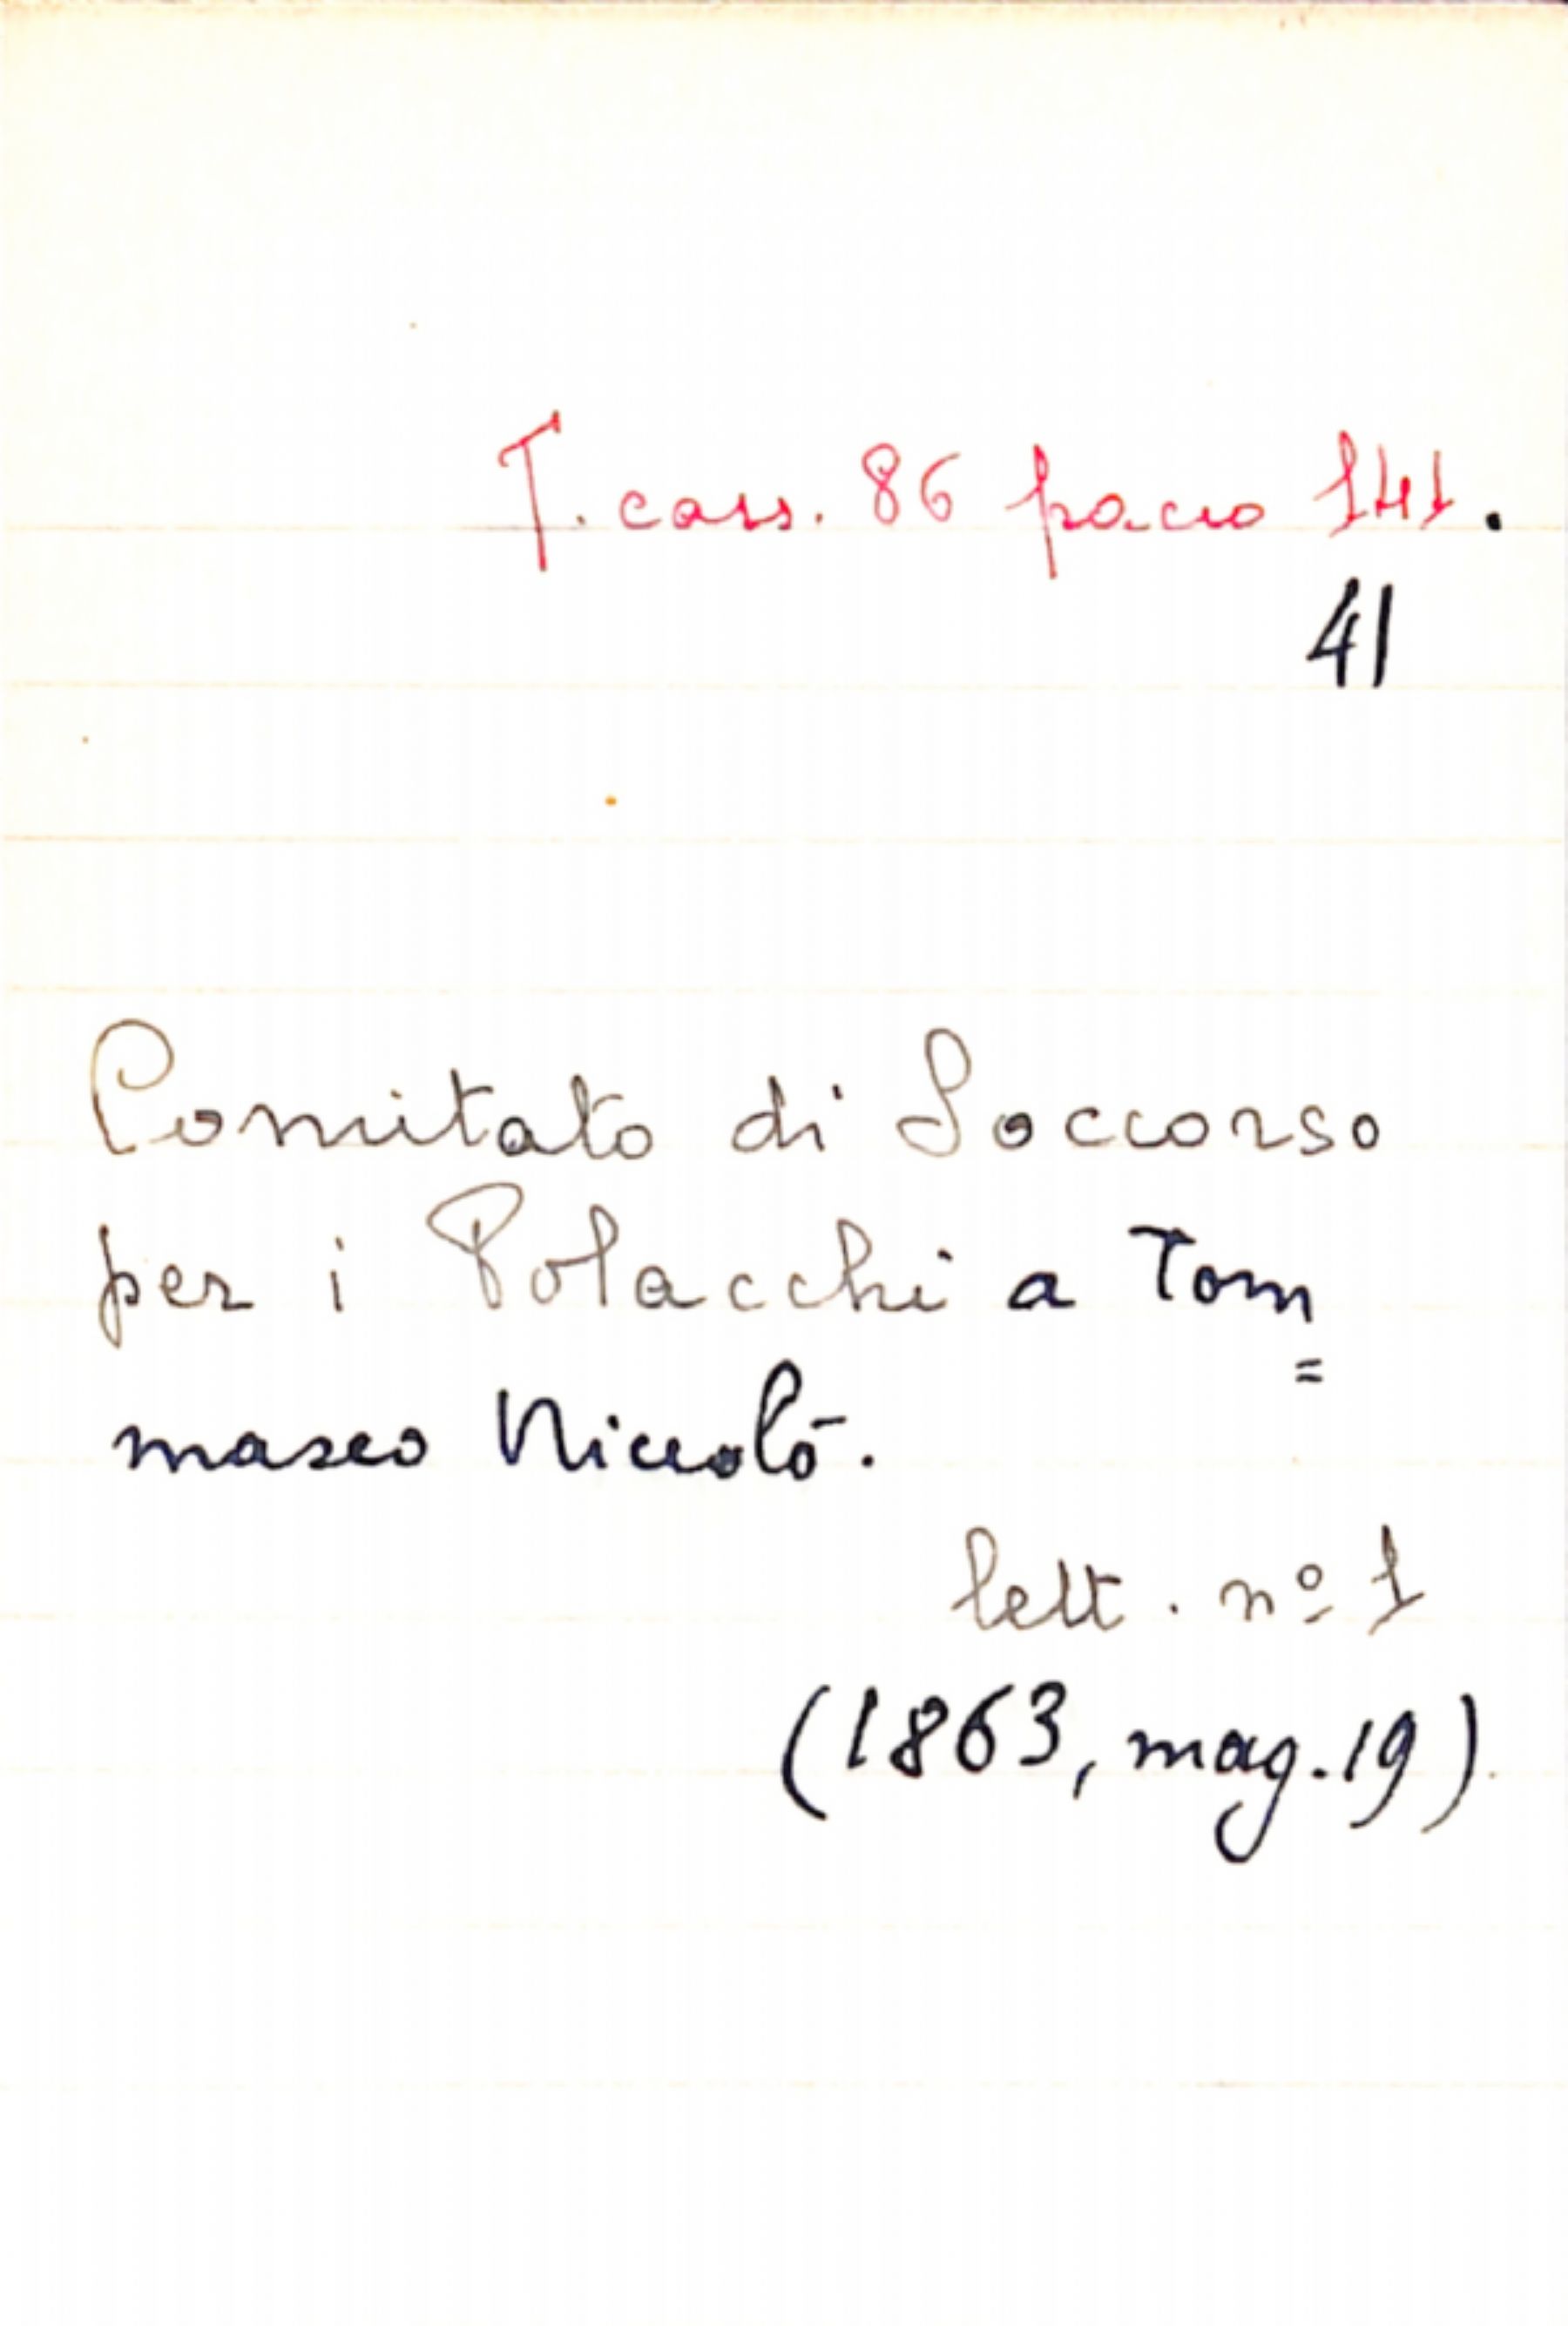 T. cass. 86 pacco 141.
41
Comitato di Soccorso
per i Polacchi a Tom
=
maseo Niccolò.
lett. nº 1
(1863, mag. 19).